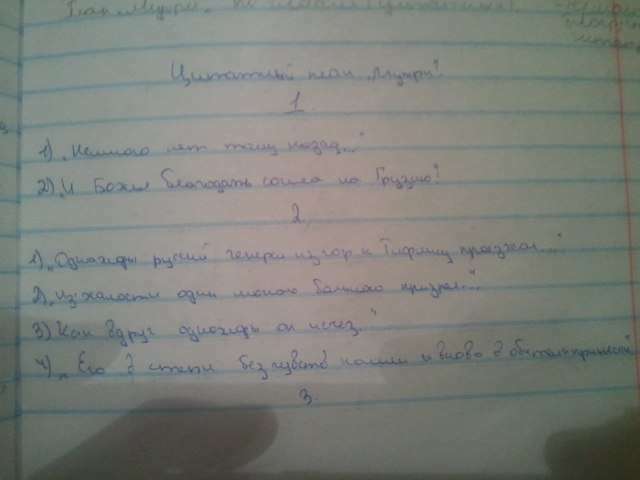 План "Мцыри"
Цитатный план „Мцыри"
1
1) „Немного лет тому назад..."
2) „И Божья благодать сошла на Грузию"
2.
1) „Однажды русский генерал из гор к Тифлису проезжал..."
2) „Из жалости один монах больного призрел..."
3) Как вдруг однажды он исчез..."
4) „Его в степи без чувств нашли и вновь в обитель принесли"
3